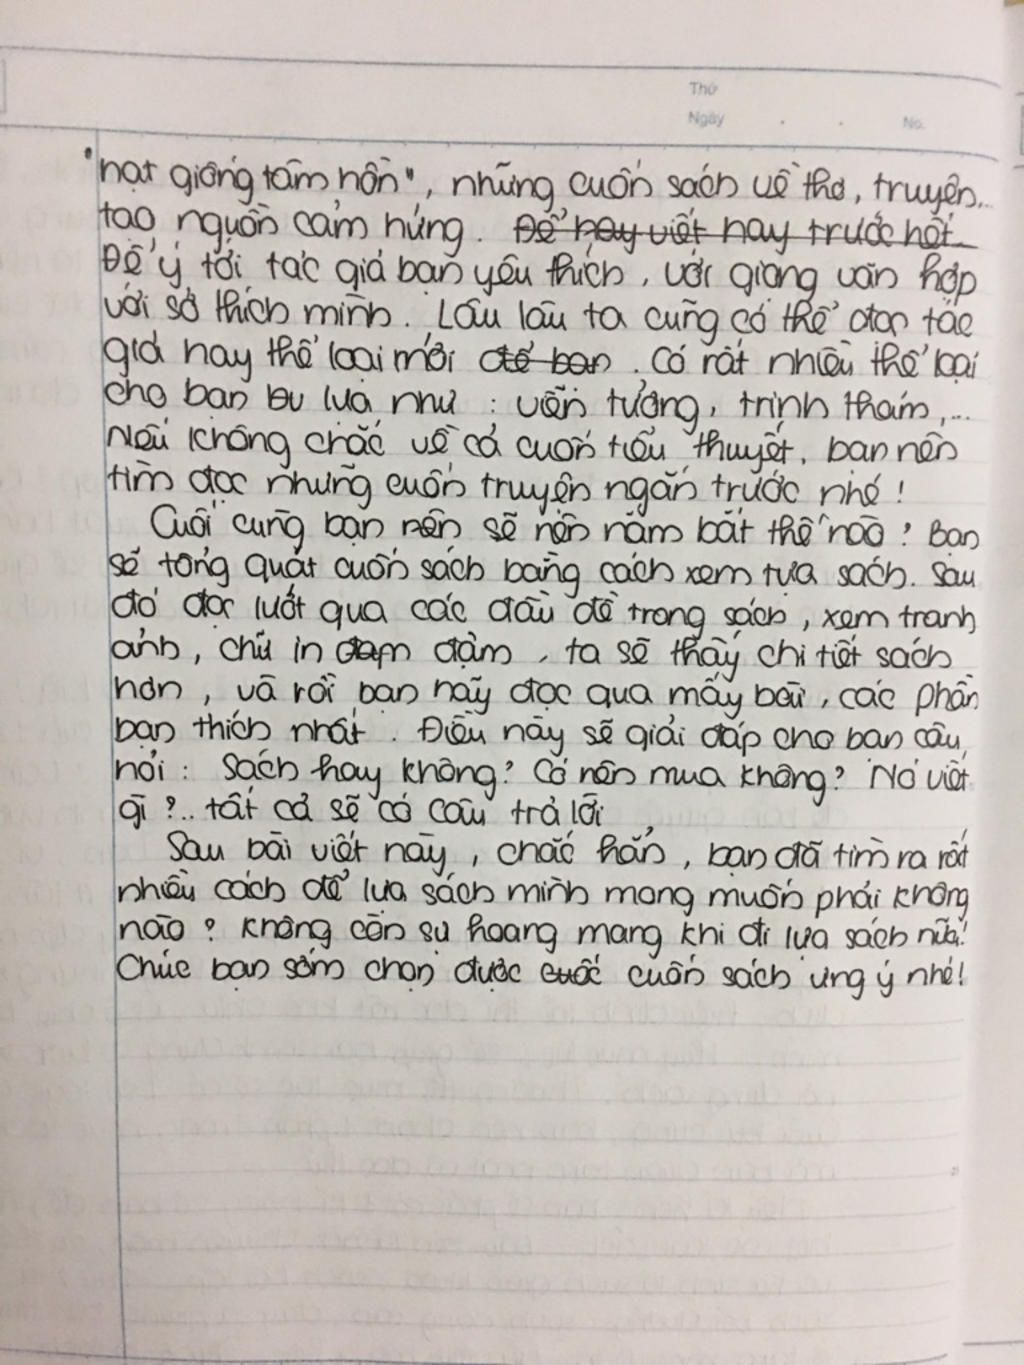 Thứ
Ngày . . No.
"hạt giống tâm hồn", những cuốn sách về thơ, truyện,..
tạo nguồn cảm hứng. Để hay viết hay trước hết
Để ý tới tác giả bạn yêu thích, với giọng văn hợp
với sở thích mình. Lâu lâu ta cũng có thể đọc tác
giả hay thể loại mới để bạn. Có rất nhiều thể loại
cho bạn lựa như : viễn tưởng, trinh thám,...
Nếu không chắc về cả cuốn tiểu thuyết, bạn nên
tìm đọc những cuốn truyện ngắn trước nhé!
Cuối cùng bạn nên sẽ nên nắm bắt thế nào? Bạn
sẽ tổng quát cuốn sách bằng cách xem tựa sách. Sau
đó đọc lướt qua các đầu đề trong sách, xem tranh
ảnh, chữ in đậm, ta sẽ thấy chi tiết sách
hơn, và rồi bạn hãy đọc qua mấy bài, các phần
bạn thích nhất. Điều này sẽ giải đáp cho bạn câu
hỏi : Sách hay không? Có nên mua không? Nó viết
gì ?.. tất cả sẽ có câu trả lời
Sau bài viết này, chắc hẳn, bạn đã tìm ra rất
nhiều cách để lựa sách mình mong muốn phải không
nào? Không còn sự hoang mang khi đi lựa sách nữa!
Chúc bạn sớm chọn được cuốn sách ưng ý nhé!